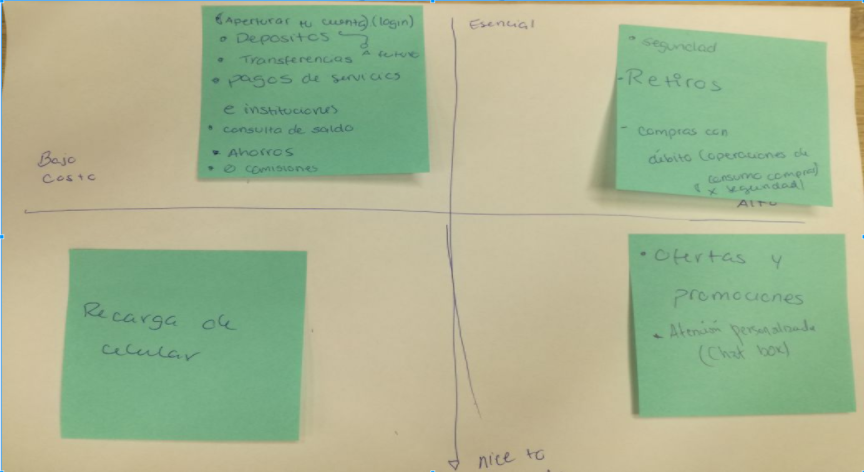 (Aperturar tu cuenta) (login)
• Depositos
• Transferencias a futuro
• pagos de servicios
e instituciones
• consulta de saldo
• Ahorros
• 0 comisiones
Esencial
• Seguridad
- Retiros
- compras con
débito (operaciones de
consumo compras)
x seguridad)
Bajo
Costo
Alto
Recarga de
celular
• Ofertas y
promociones
• Atención personalizada
(Chat box)
nice to